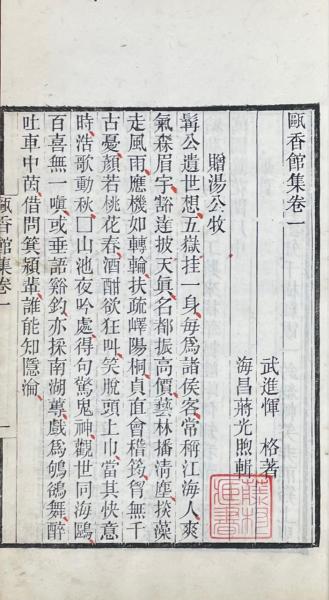 甌香館集卷一
武進惲　格著
海昌蔣光煦輯
贈湯公牧
髯公遺世想五嶽挂一身每爲諸侯客常稱江海人爽
氣森眉宇豁達披天真名都振高價藝林播清塵掞藻
走風雨應機如轉輪扶疏嶧陽桐貞直會稽筠曾無千
古憂顏若桃花春酒酣欲狂叫笑脫頭上巾當其快意
時浩歌動秋囗山池夜吟處得句驚鬼神觀世同海鷗
百喜無一嗔或垂語谿釣亦採南湖蓴戲爲鴝鵒舞醉
吐車中茵借問箕潁輩誰能知隱淪
甌香館集卷一
一